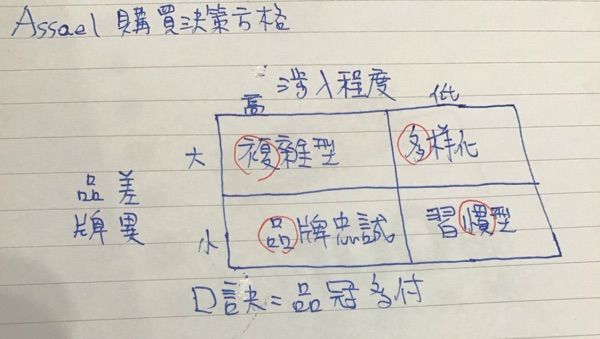 Assael 購買決策方格
涉入程度
高 低
大 複雜型 多样化
品牌差異
小 品牌忠誠 習慣型
口訣=品冠多付